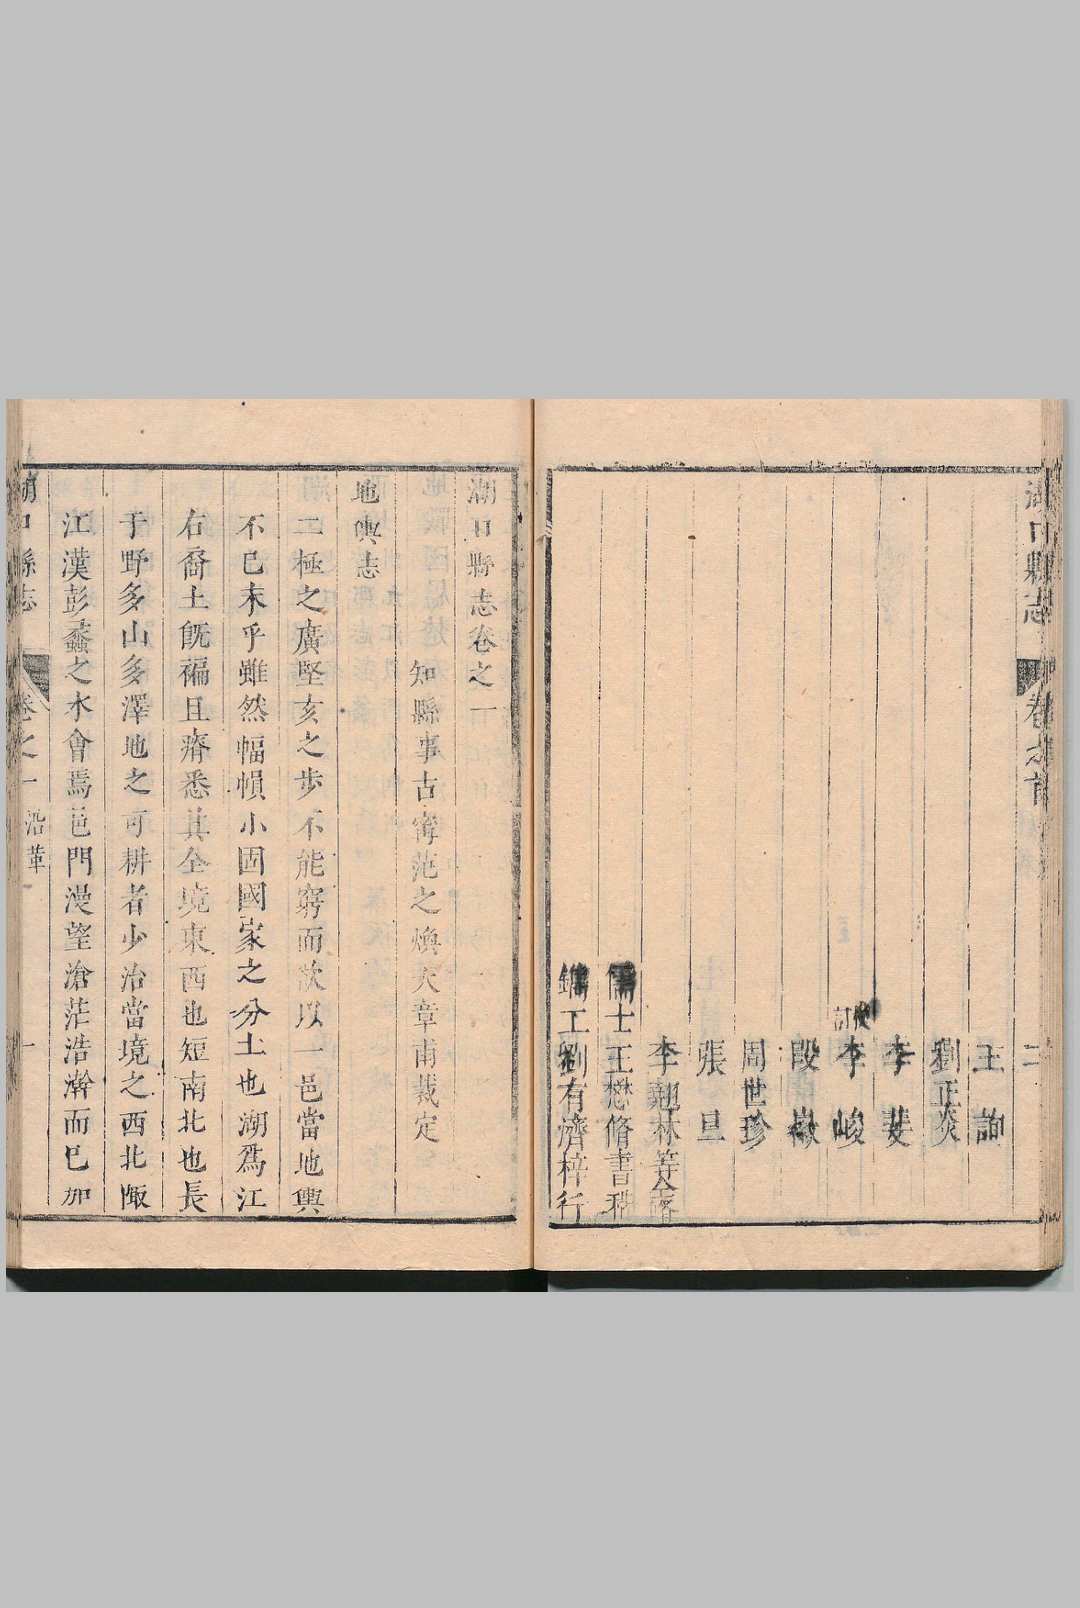 湖口縣志 卷之首
二
王 詢
劉正炎
李 斐
李 峻
段 嶽
周世珍
張 旦
李翹林等仝
儒士王懋脩書
鐫工劉有濟梓行
湖口縣志卷之一
知縣事古甯范之煥天章甫裁定
地輿志
二極之廣堅亥之步不能窮而欲以一邑當地輿
不已末乎雖然幅幀小固國家之分土也湖爲江
右裔土旣褊且瘠悉其全境東西也短南北也長
于野多山多澤地之可耕者少治當境之西北陬
江漢彭蠡之水會焉邑門漫望滄茫浩瀚而已加
湖口縣志 卷之一 沿革 一